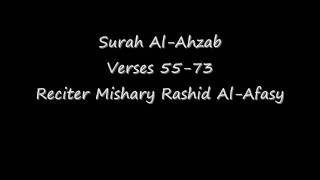 Surah Al-Ahzab
Verses 55-73
Reciter Mishary Rashid Al-Afasy